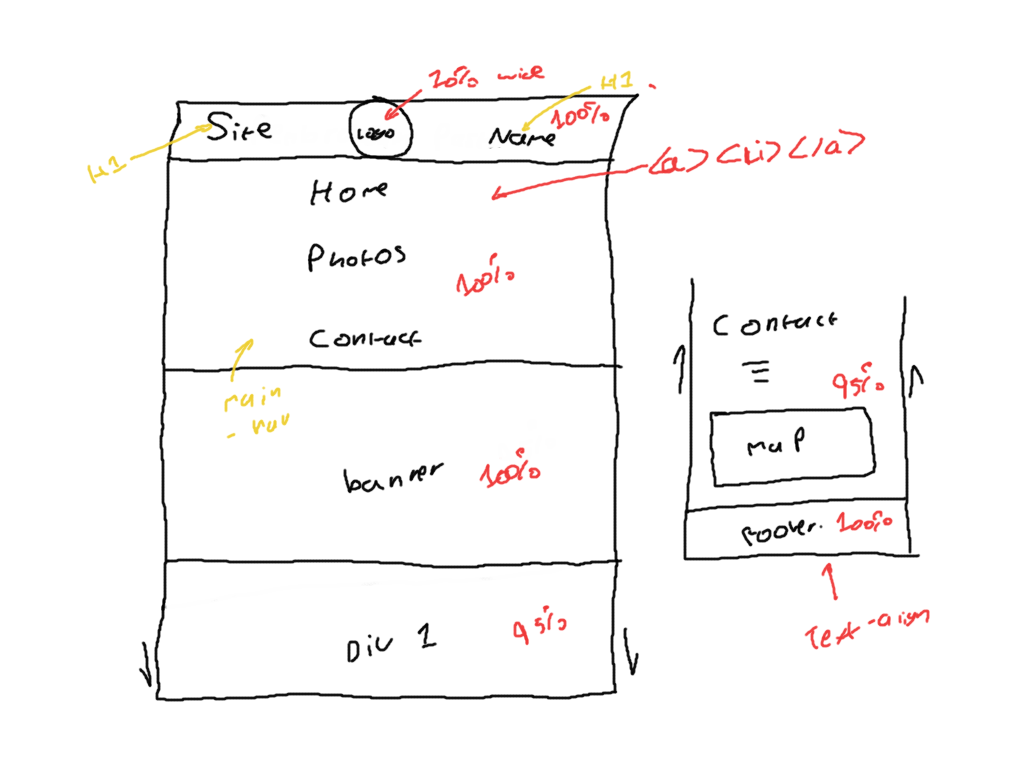 20% wide
H1
Site
LOGO
Name
100%
H1
<a><Li></a>
Home
Photos
100%
Contact
main
- nav
banner
100%
Div 1
95%
Contact
95%
map
footer.
100%
Text-align